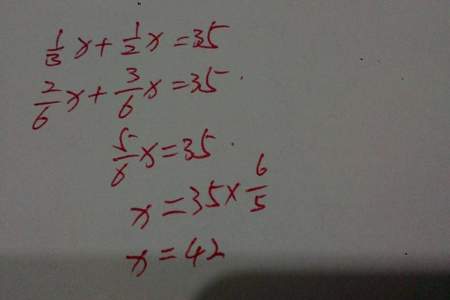 1/3 x + 1/2 x = 35
2/6 x + 3/6 x = 35
5/6 x = 35
x = 35 × 6/5
x = 42